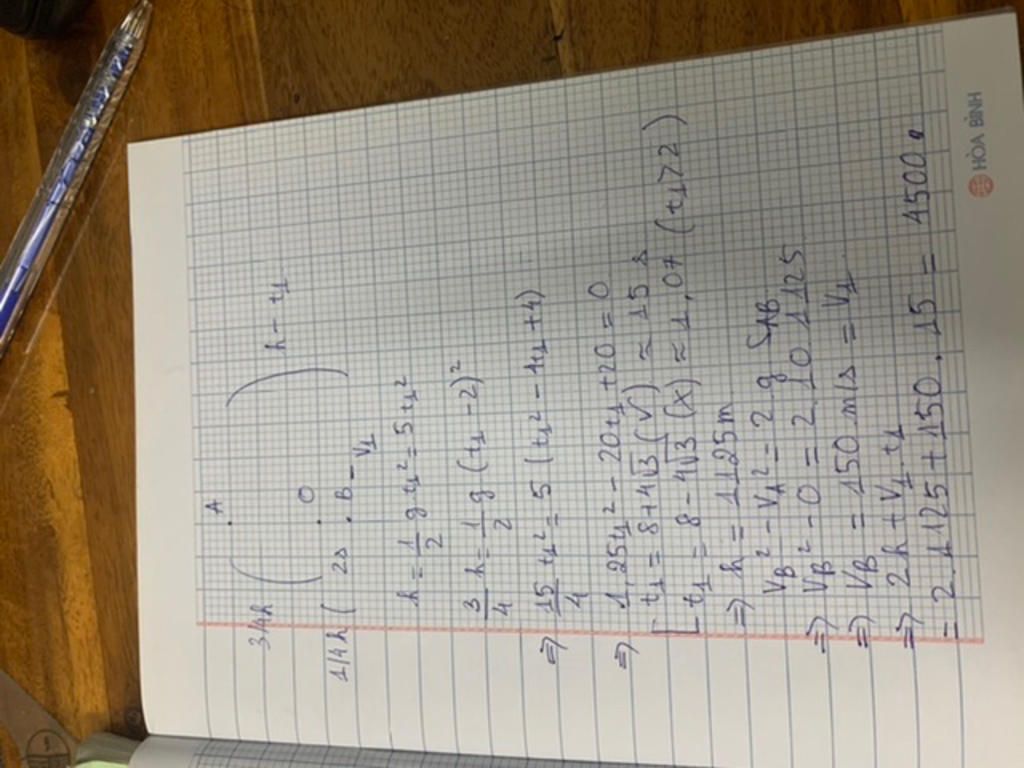 . A
3/4h
. O
h - t₁
1/4h ( 2s . B - V₁
h = 1/2 g t₁² = 5 t₁²
3/4 h = 1/2 g (t₁ - 2)²
=> 15/4 t₁² = 5 (t₁² - 4t₁ + 4)
=> 1,25t₁² - 20t₁ + 20 = 0
[ t₁ = 8 + 4√3 (√) ≈ 15 s
t₁ = 8 - 4√3 (x) ≈ 1,07 (t₁ > 2)
=> h = 1125m
V_B² - V_A² = 2 g S_AB
=> V_B² - 0 = 2. 10 1125
=> V_B = 150 m/s = V₁
=> 2h + V₁ t₁
= 2.1125 + 150.15 = 4500
HÒA BÌNH